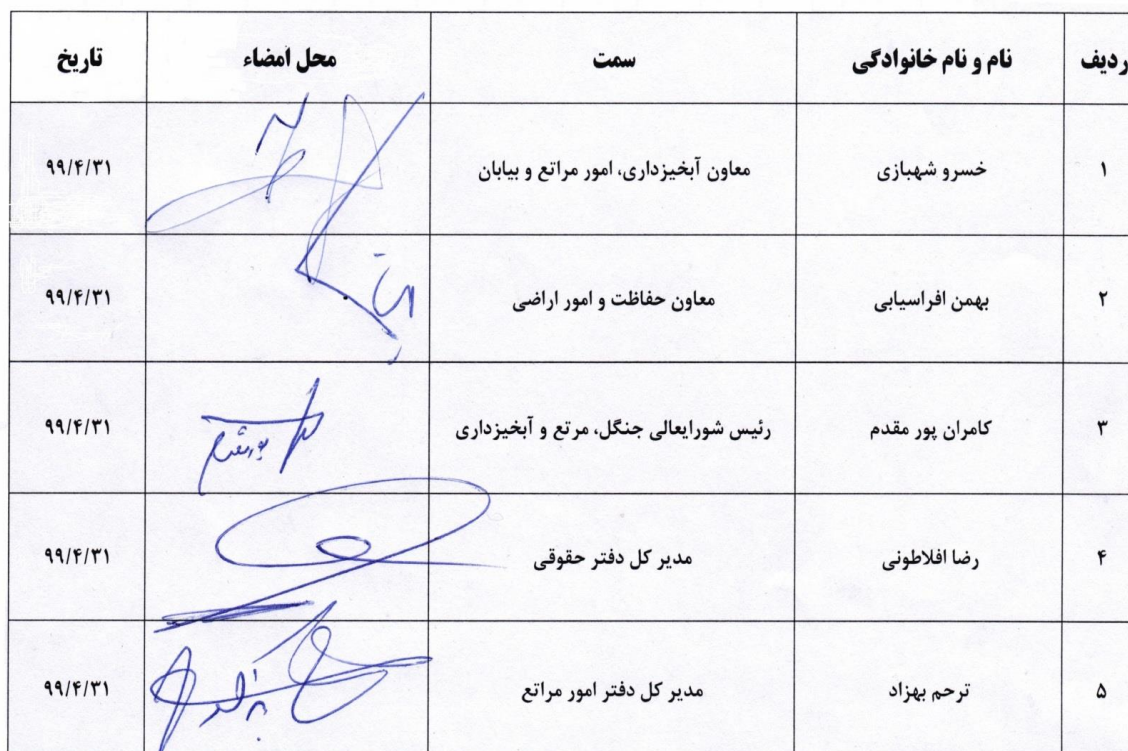 ردیف نام و نام خانوادگی سمت محل امضاء تاریخ
۱ خسرو شهبازی معاون آبخیزداری، امور مراتع و بیابان ۹۹/۴/۳۱
۲ بهمن افراسیابی معاون حفاظت و امور اراضی ۹۹/۴/۳۱
۳ کامران پور مقدم رئیس شورایعالی جنگل، مرتع و آبخیزداری ۹۹/۴/۳۱
۴ رضا افلاطونی مدیر کل دفتر حقوقی ۹۹/۴/۳۱
۵ ترحم بهزاد مدیر کل دفتر امور مراتع ۹۹/۴/۳۱